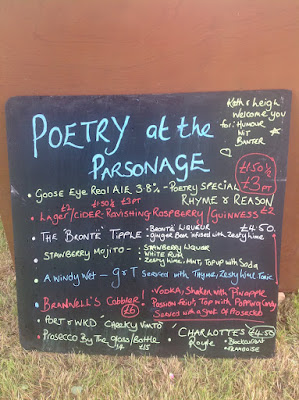 Kath & Leigh
Welcome you
for: HUMOUR
WIT
BANTER
POETRY at the
PARSONAGE
• GOOSE EYE REAL ALE 3.8% - POETRY SPECIAL
RHYME & REASON
£1.50 ½
£3 PT
£2 £1.50 ½ £3 PT
• LAGER/CIDER: RAVISHING RASPBERRY/GUINNESS £2
• THE 'BRONTË' TIPPLE - BRONTË LIQUEUR
- GINGER BEER INFUSED WITH ZESTY LIME
£4.50
• STAWBERRY MOJITO - :- STAWBERRY LIQUOR
:- WHITE RUM
- ZESTY LIME, MINT, TOP UP WITH SODA
• A WINDY WET - G & T SERVED WITH THYME, ZESTY LIME, TONIC
• BRANWELL'S COBBLER! - VODKA, SHAKEN WITH PINEAPPLE
£6
PASSION FRUIT, TOP WITH POPPING CANDY
SERVED WITH A SHOT OF PROSECCO
• PORT & WKD 'CHEEKY VIMTO'
• PROSECCO BY THE GLASS/BOTTLE
£4 £15
'CHARLOTTE'S £4.50
ROYLE - BLACKCURRANT
- FRAMBOISE